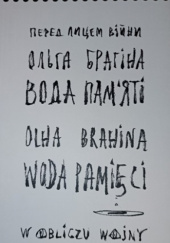 ПЕРЕД ЛИЦЕМ ВІЙНИ
ОЛЬГА БРАГІНА
ВОДА ПАМ'ЯТІ
OLHA BRAHINA
WODA PAMIĘCI
W OBLICZU WOJNY